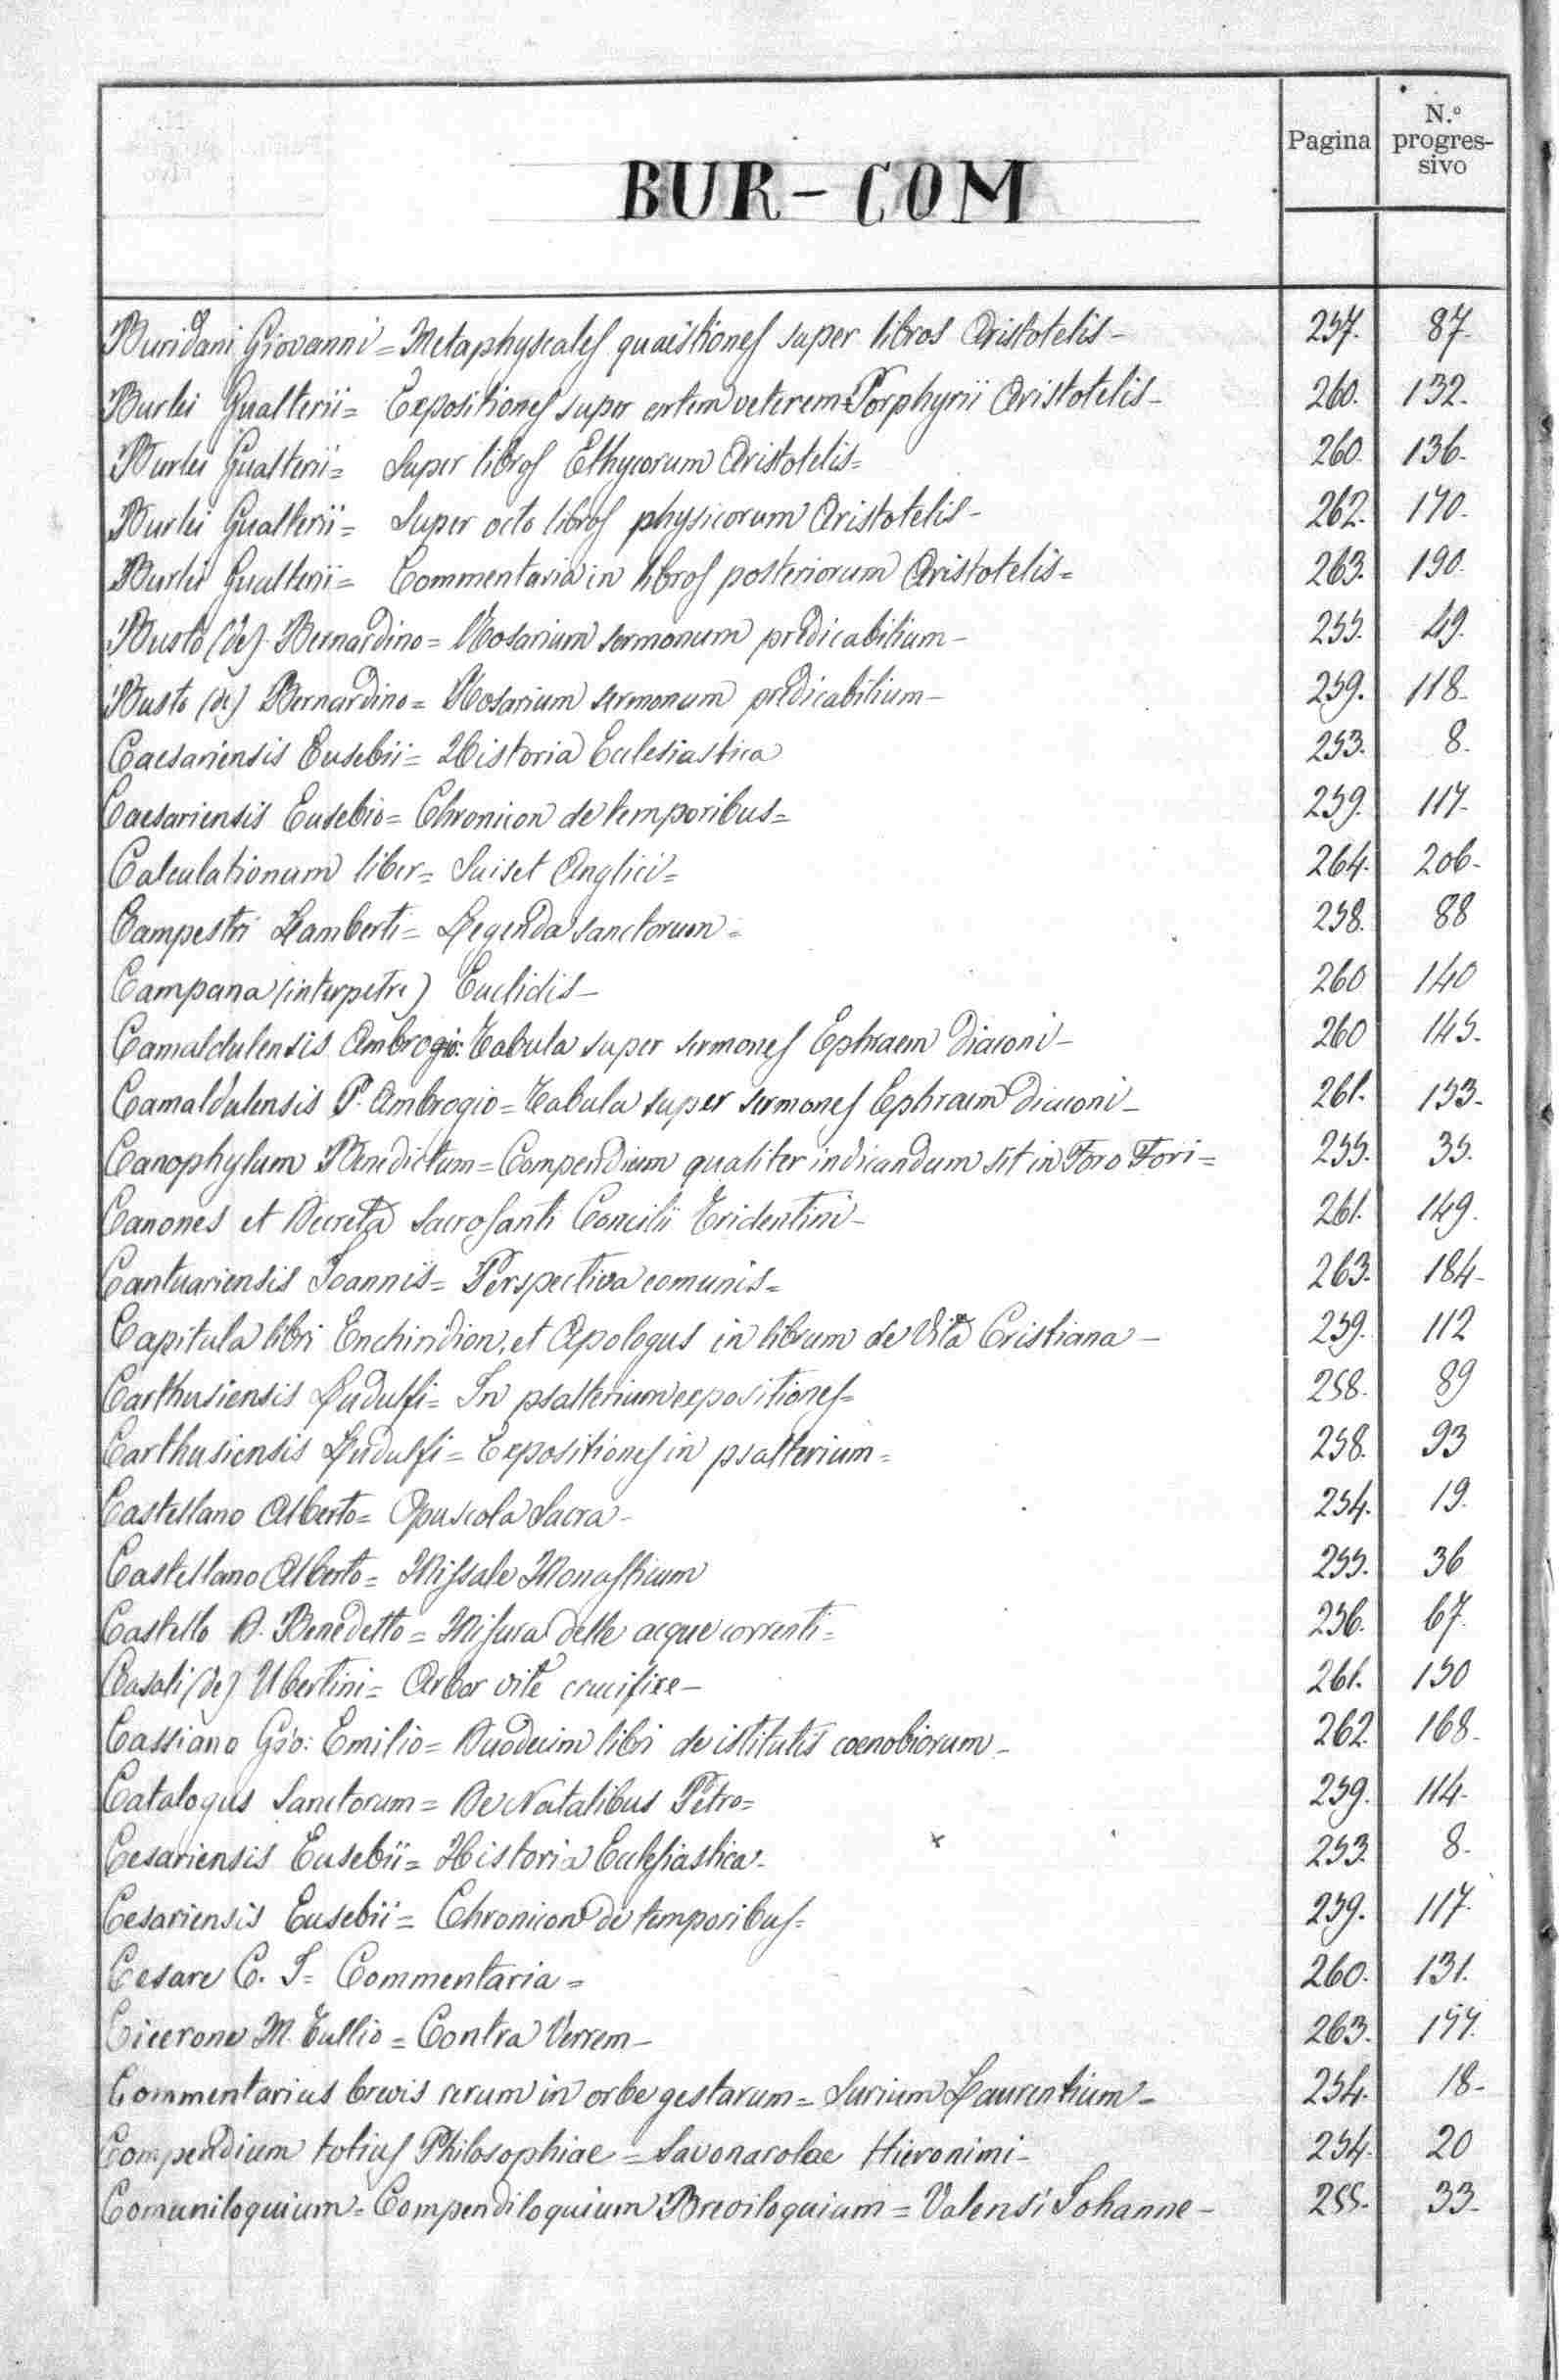 Pagina N.º progres-sivo
BUR - COM
Buridani Giovanni = Metaphysicales quaestiones super libros Aristotelis - 257. 87.
Burlei Gualterii = Expositiones super artem veterem Porphyrii Aristotelis - 260. 132.
Burlei Gualterii = Super libros Ethycorum Aristotelis = 260. 136.
Burlei Gualterii = Super octo libros physicorum Aristotelis - 262. 170.
Burlei Gualterii = Commentaria in libros posteriorum Aristotelis = 263. 190.
Busto (de) Bernardino = Rosarium sermonum predicabilium - 255. 49.
Busto (de) Bernardino = Rosarium sermonum predicabilium - 259. 118.
Caesariensis Eusebii = Historia Ecclesiastica 253. 8.
Caesariensis Eusebio = Chronicon de temporibus = 259. 117.
Calculationum liber = Suiset Anglici = 264. 206.
Campestri Lamberti = Legenda sanctorum = 258. 88
Campana (interpetre) Euclidis - 260 140
Camaldulensis Ambrogio: Tabula super sermones Ephraem Diaconi - 260 145.
Camaldulensis P. Ambrogio = Tabula super sermones Ephraem Diaconi - 261. 153.
Canophylum Benedictum = Compendium qualiter indicandum sit in Foro Fori = 255. 35.
Canones et Decreta Sacrosanti Concilii Tridentini - 261. 149.
Cantuariensis Joannis = Perspectiva comunis = 263. 184.
Capitula libri Enchiridion, et Apologus in librum de Vita Cristiana - 259. 112
Carthusiensis Ludulfi = In psalterium expositiones = 258. 89
Carthusiensis Ludulfi = Expositiones in psalterium = 258. 93
Castellano Alberto = Opuscola Sacra - 254. 19.
Castellano Alberto = Missale Monasticum 255. 36
Castello D. Benedetto = Misura delle acque correnti = 256. 67.
Casali (de) Ubertini = Arbor vite crucifixe - 261. 150
Cassiano Gio: Emilio = Duodecim libri de istitutis coenobiorum - 262. 168.
Catalogus Sanctorum = De Natalibus Petro = 259. 114.
Cesariensis Eusebii = Historia Ecclesiastica - x 253. 8.
Cesariensis Eusebii = Chronicon de temporibus = 259. 117.
Cesare C. J = Commentaria = 260. 131.
Cicerone M. Tullio = Contra Verrem - 263.
Commentarius brevis rerum in orbe gestarum = Surium Laurentium - 254. 18.
Compendium totius Philosophiae = Savonarolae Hieronimi - 254. 20
Comuniloquium = Compendiloquium Breviloquium = Valensi Johanne - 255. 33.